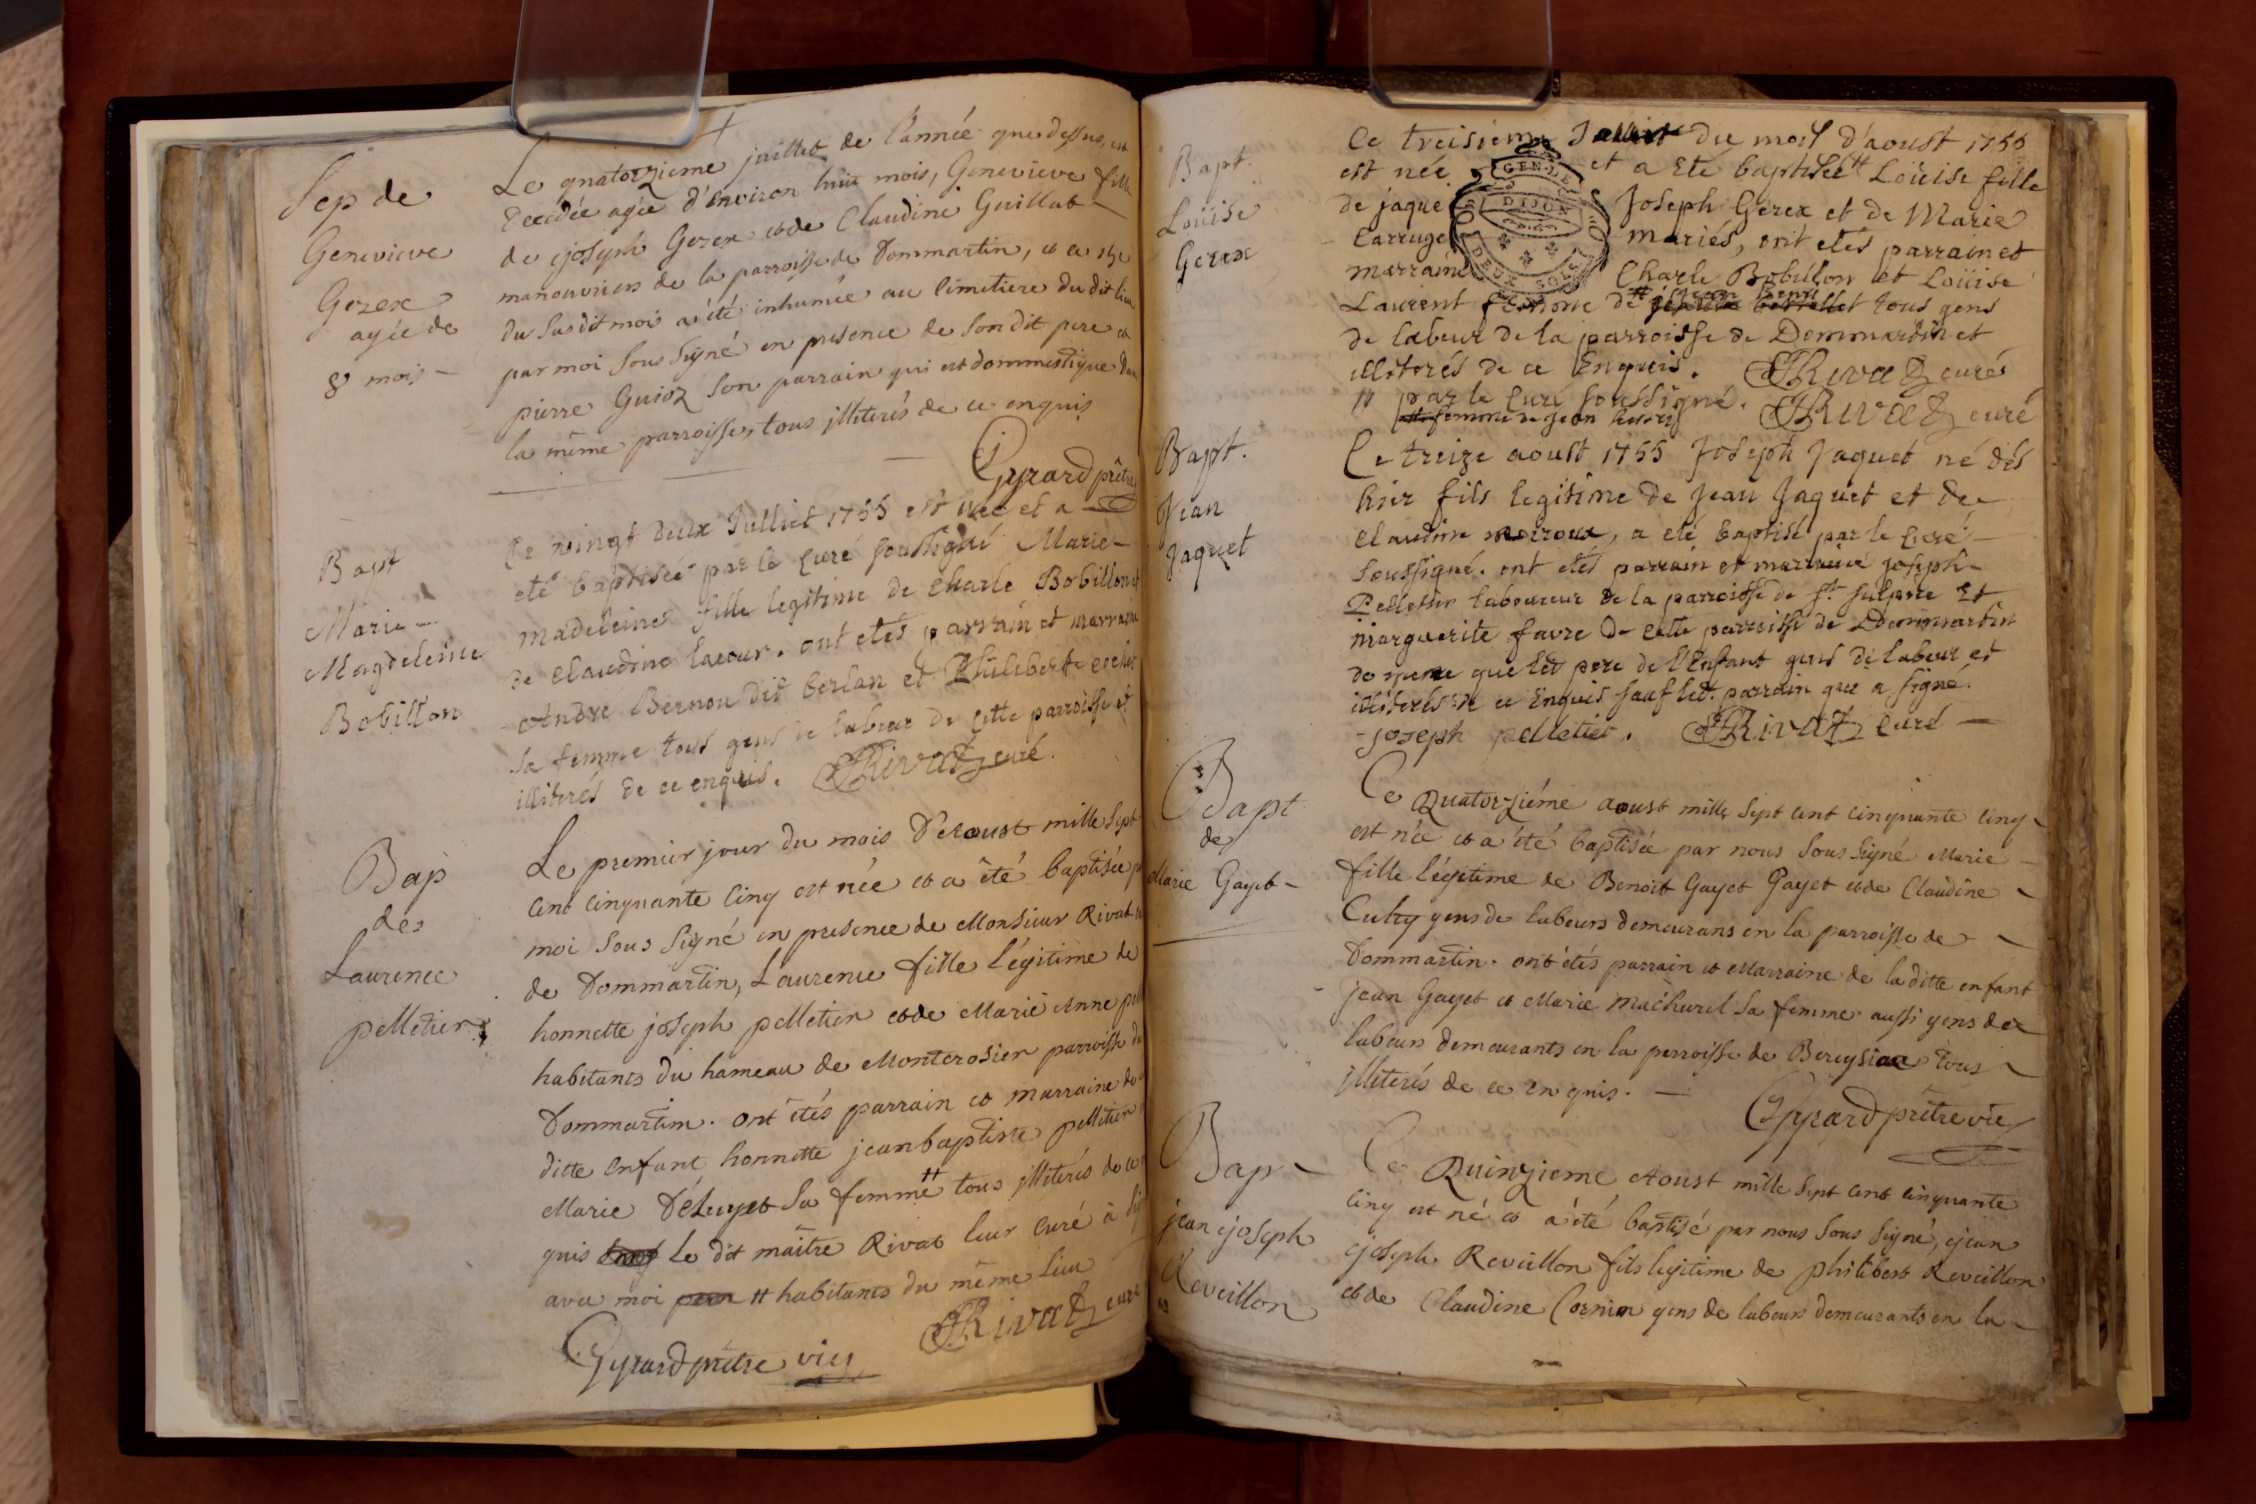 Sep de
Genevieve
Gezex
agée de
8 mois
Le quatorzieme juillet de l'année que dessus, est
Decedée agée d'environ huit mois, Genevieve fille
de joseph Gezex et de Claudine Guillat
manouvriers de la parroisse de Dommartin, et a
du susdit mois a été inhumée au cimetiere du dit lieu
par moi sous signé en presence de son dit pere et
pierre Guioz son parrain qui est dommestique dans
la même parroisse, tous jlliterés de ce enquis
Gyrard prêtre
Bapt
Marie
Magdeleine
Bobillon
Le vingt deux Julliet 1755 est née et a
eté baptisée par le curé soussigné Marie
madeleine fille legitime de Charle Bobillon et
de Claudine lacour. ont etés parrain et marraine
André Bernon dit berlan et Philiberte cochet
sa femme tous gens de labeur de cette parroisse et
illiterés de ce enquis. Rivat curé.
Bap
de
Laurence
pelletier
Le premier jour du mois D'Aoust mille sept
cent cinquante cinq est née et a été baptisée par
moi sous signé en presence de Monsieur Rivat
de Dommartin, Laurence fille légitime de
honnette joseph pelletier et de Marie Anne
habitants du hameau de Montcrosier parroisse de
Dommartin. ont étés parrain et marraine de
ditte enfant honnette jean baptiste pelletier
Marie Déluyet sa femme # tous jlliterés de ce
quis le dit maître Rivat leur curé à
avec moi # habitants du même lieu
Rivat curé
Gyrard prêtre vic
Bapt.
Loüise
Gerex
Ce treisieme du mois d'aoust 1755
est née et a eté baptisée # Loüise fille
de jaque Joseph Gerex et de Marie
Carruge mariés, ont etés parrain et
marraine Charle Bobillon et Loüise
Laurent femme de # tous gens
de labeur de la parroisse de Dommartin et
illiterés de ce Enquis. Rivat curés
# par le curé soussigné. Rivat curé
femme de Jean
GEN. DE
DIJON
DEUX SOLS
Bapt.
Jean
Jaquet
Ce treize aoust 1755 Joseph Jaquet né dés
hier fils legitime de Jean Jaquet et de
Claudine moiroux, a eté baptisé par le Curé
soussigné. ont etés parrain et marraine joseph
Pelletier laboureur de la parroisse de St. sulpice Et
marguerite favre De cette parroisse de Dommartin
de meme que led. pere de l'Enfant gens de labeur et
illiterés de ce Enquis sauf led. parrain que a signé.
joseph pelletier. Rivat Curé
Bapt
de
Marie Gayet
Le Quatorziéme aoust mille sept cent cinquante cinq
est née et a été baptisée par nous sous signé Marie
fille légitime de Benoit Gayet Gayet et de Claudine
Culty gens de labeurs demeurans en la parroisse de
Dommartin. ont étés parrain et Marraine de la ditte enfant
jean Gayet et Marie machurel sa femme aussi gens de
labeurs demeurants en la perroisse de Bereysiae tous
jlliterés de ce enquis.
Gyrard prêtre vic
Bap
jean joseph
Reveillon
Le Quinzieme Aoust mille sept cent cinquante
cinq est né et a été baptisé par nous sous signé, jean
joseph Reveillon fils legitime de philibert Reveillon
et de Claudine Cornier gens de labeurs demeurants en la